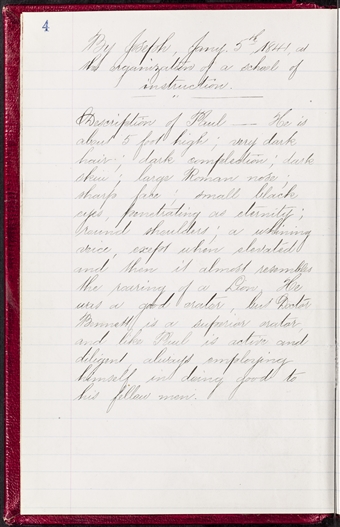 4
By Joseph, Jany 5th 1841, at
the organization of a school of
instruction.
Description of Paul — He is
about 5 foot high; very dark
hair; dark complection; dark
skin; large Roman nose;
sharp face; small black
eyes, penetrating as eternity;
round shoulders; a whining
voice, except when elevated
and then it almost resembles
the roaring of a Lion. He
was a good orator, but Doctor
Bennett is a superior orator,
and like Paul is active and
diligent, always employing
himself in doing good to
his fellow men.